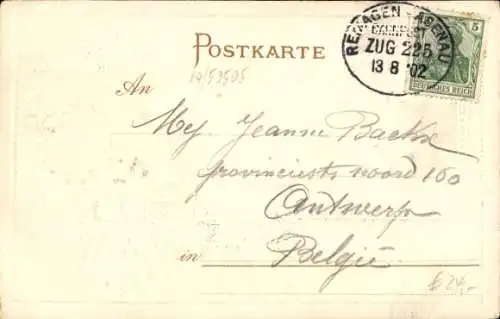 REMAGEN - ADENAU
BAHNPOST
ZUG 225
13 8 02
5
DEUTSCHES REICH
POSTKARTE
An
Mej. Jeanne
provinciestr noord 160
Antwerp
in België
€24,-